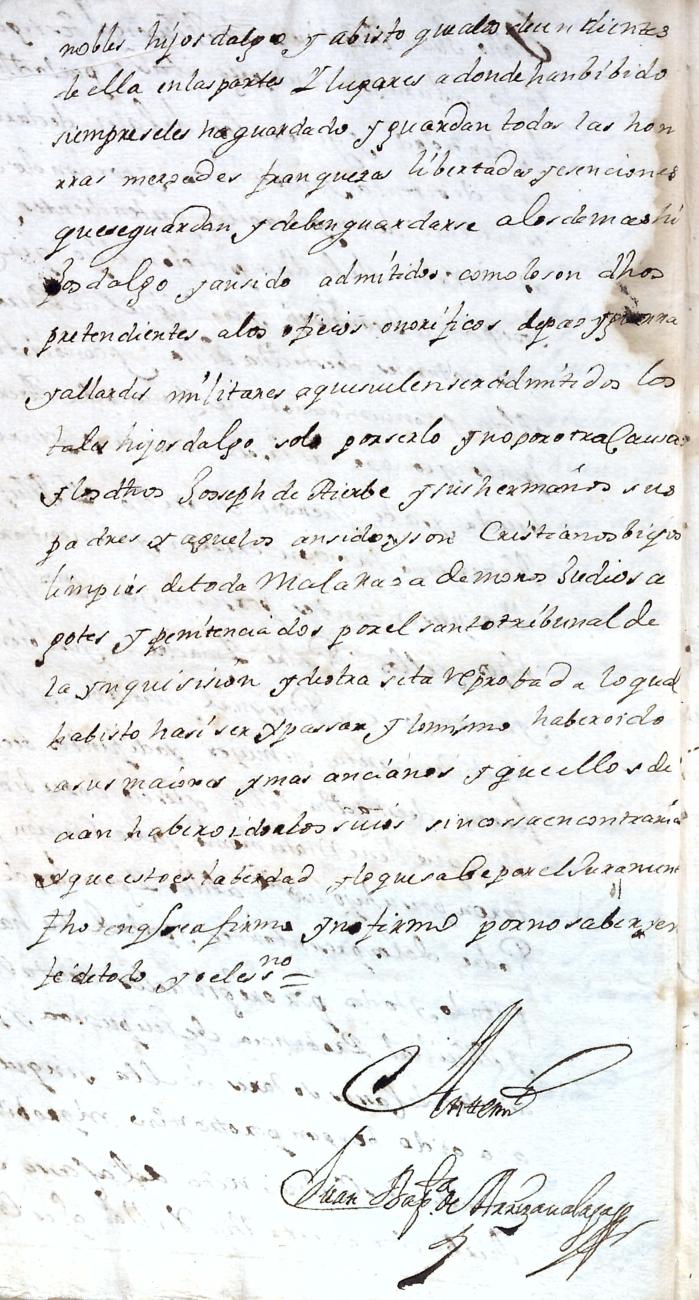 nobles hijos dalgo y abisto que alos deçendientes
de ella en las partes Y lugares a donde han bibido
siempre seles ha guardado y guardan todas las hon
rras merzedes franquezas libertades y esenciones
que seguardan y deben guardarse alos demas hi
Jos dalgo y ansido admitidos como lo son dhos
pretendientes alos ofiçios onorificos de paz y guerra
y allardes militares aque suelen ser admitidos los
tales hijos dalgo solo por serlo y no por otra Causa
y los dhos Joseph de Hierbe y sus hermanos sus
padres y aguelos ansido y son Cristianos biejos
limpios de toda Mala Raza de moros Judios a
gotes y penitenciados por el santo tribunal de
la ynquisision y de otra seta reprobada lo qual
ha bisto hasi ser y passar y lo mismo haber oido
a sus maiores y mas ancianos y que ellos de
cian haber oido alos suios sin cossa en contrario
y que esto es la berdad y lo que sabe por el Jurament
fho en q se afirmo y no firmo por no saber y en
fe de todo yo el ess.no =
Antemi
Juan Bap.ta de